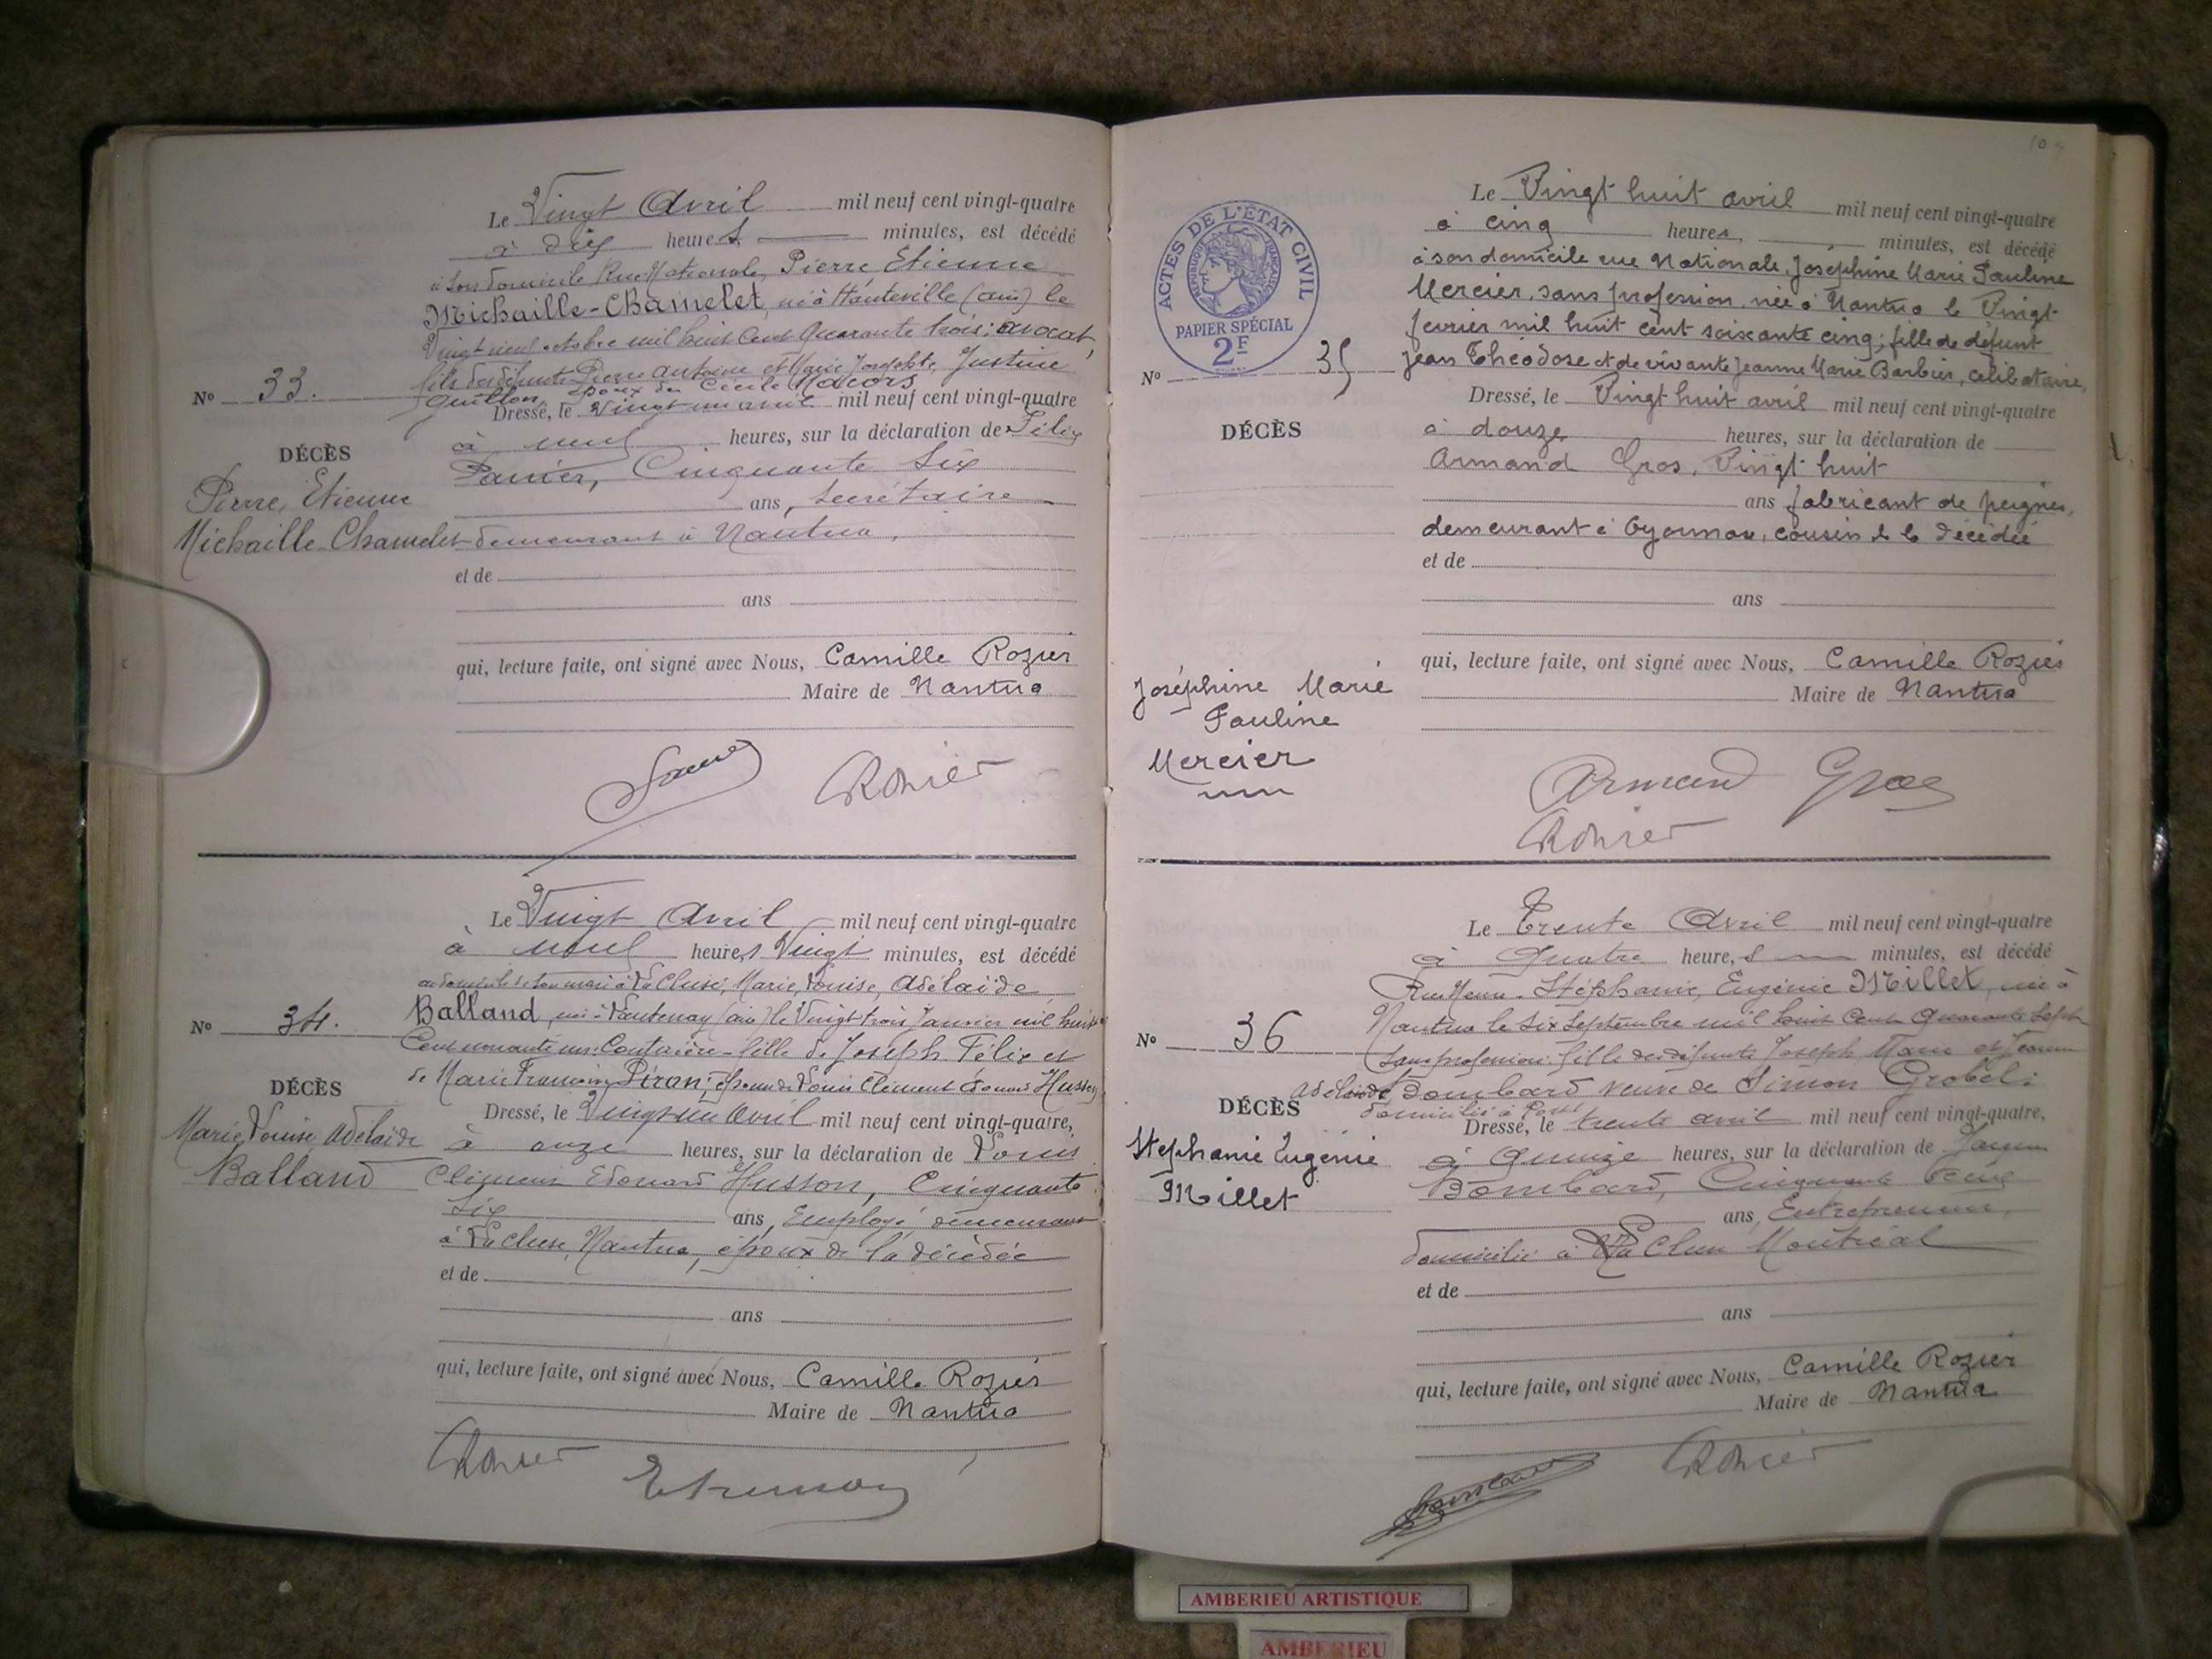 Le Vingt Avril mil neuf cent vingt-quatre
à dix heures minutes, est décédé
à son domicile Rue Nationale, Pierre Etienne
Michaille-Chamelet, né à Hauteville (ain) le
Vingt neuf octobre mil huit Cent Quarante trois; avocat,
fils des défunts Pierre Antoine et Marie Josephte, Justine
Guillon, époux de Cécile
No 33.
Dressé, le Vingt un avril mil neuf cent vingt-quatre
à neuf heures, sur la déclaration de Félix
Panier, Cinquante Six
ans, Secrétaire
demeurant à Nantua,
DÉCÈS
Pierre, Etienne
Michaille-Chamelet
et de
ans
qui, lecture faite, ont signé avec Nous, Camille Rozier
Maire de Nantua
Rozier
Le Vingt Avril mil neuf cent vingt-quatre
à neuf heures Vingt minutes, est décédé
au domicile de son mari à La Cluse, Marie, Louise, Adélaïde
Balland, née à Lantenay (ain) le Vingt trois Janvier mil huit
Cent Couturière - fille de Joseph Félix et
de Marie Françoise Piran; épouse de Louis Clément Edouard Husson
No 34.
Dressé, le Vingt un Avril mil neuf cent vingt-quatre,
à onze heures, sur la déclaration de Louis
Clément Edouard Husson, Cinquante
Six ans, Employé demeurant
à La Cluse, Nantua, époux de la décédée
DÉCÈS
Marie, Louise, Adélaïde
Balland
et de
ans
qui, lecture faite, ont signé avec Nous, Camille Rozier
Maire de Nantua
Rozier
EHusson
ACTES DE L'ÉTAT CIVIL
RÉPUBLIQUE FRANÇAISE
PAPIER SPÉCIAL
2F
Le Vingt huit avril mil neuf cent vingt-quatre
à cinq heures, minutes, est décédé
à son domicile rue Nationale, Joséphine Marie Pauline
Mercier, sans profession, née à Nantua le Vingt
fevrier mil huit cent soixante cinq; fille de défunt
Jean Théodose et de vivante Jeanne Marie Barbier, célibataire,
No 35
Dressé, le Vingt huit avril mil neuf cent vingt-quatre
à douze heures, sur la déclaration de
Armand Gros, Vingt huit
ans fabricant de peignes,
demeurant à Oyonnax, cousin de la décédée
DÉCÈS
Joséphine Marie
Pauline
Mercier
et de
ans
qui, lecture faite, ont signé avec Nous, Camille Rozier
Maire de Nantua
Armand Gros
Rozier
Le Trente Avril mil neuf cent vingt-quatre
à Quatre heures minutes, est décédé
Rue Stéphanie, Eugénie Millet, née à
Nantua le Six Septembre mil huit Cent Quarante Sept
sans profession: fille des défunts Joseph Marie et Jeanne
Adélaïde Dombard veuve de Simon Grobel:
domiciliée à
No 36
Dressé, le trente avril mil neuf cent vingt-quatre,
à Quinze heures, sur la déclaration de
Dombard, Cinquante
ans, Entrepreneur,
domicilié à La Cluse Montréal
DÉCÈS
Stephanie Eugénie
Millet
et de
ans
qui, lecture faite, ont signé avec Nous, Camille Rozier
Maire de Nantua
Rozier
AMBERIEU ARTISTIQUE
AMBERIEU